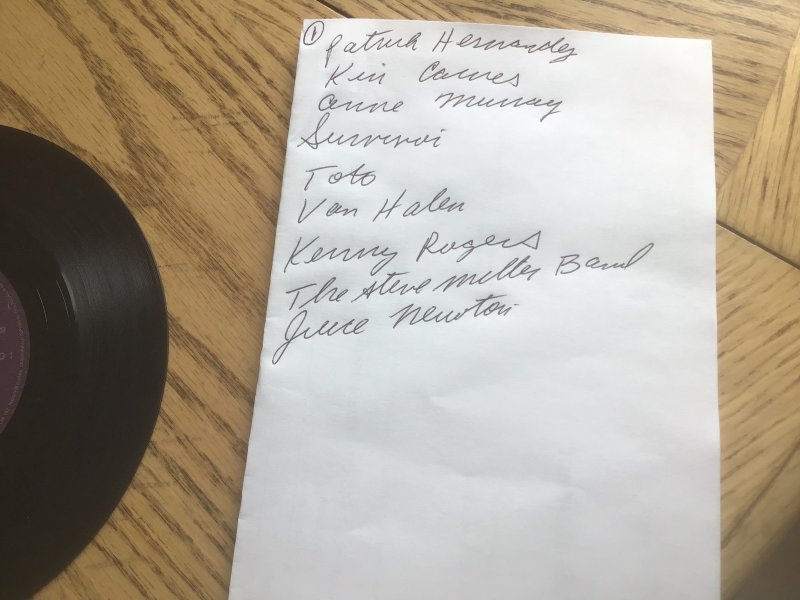 1
Patrick Hernandez
Kim Carnes
Anne Murray
Survivor
Toto
Van Halen
Kenny Rogers
The Steve Miller Band
Juice Newton